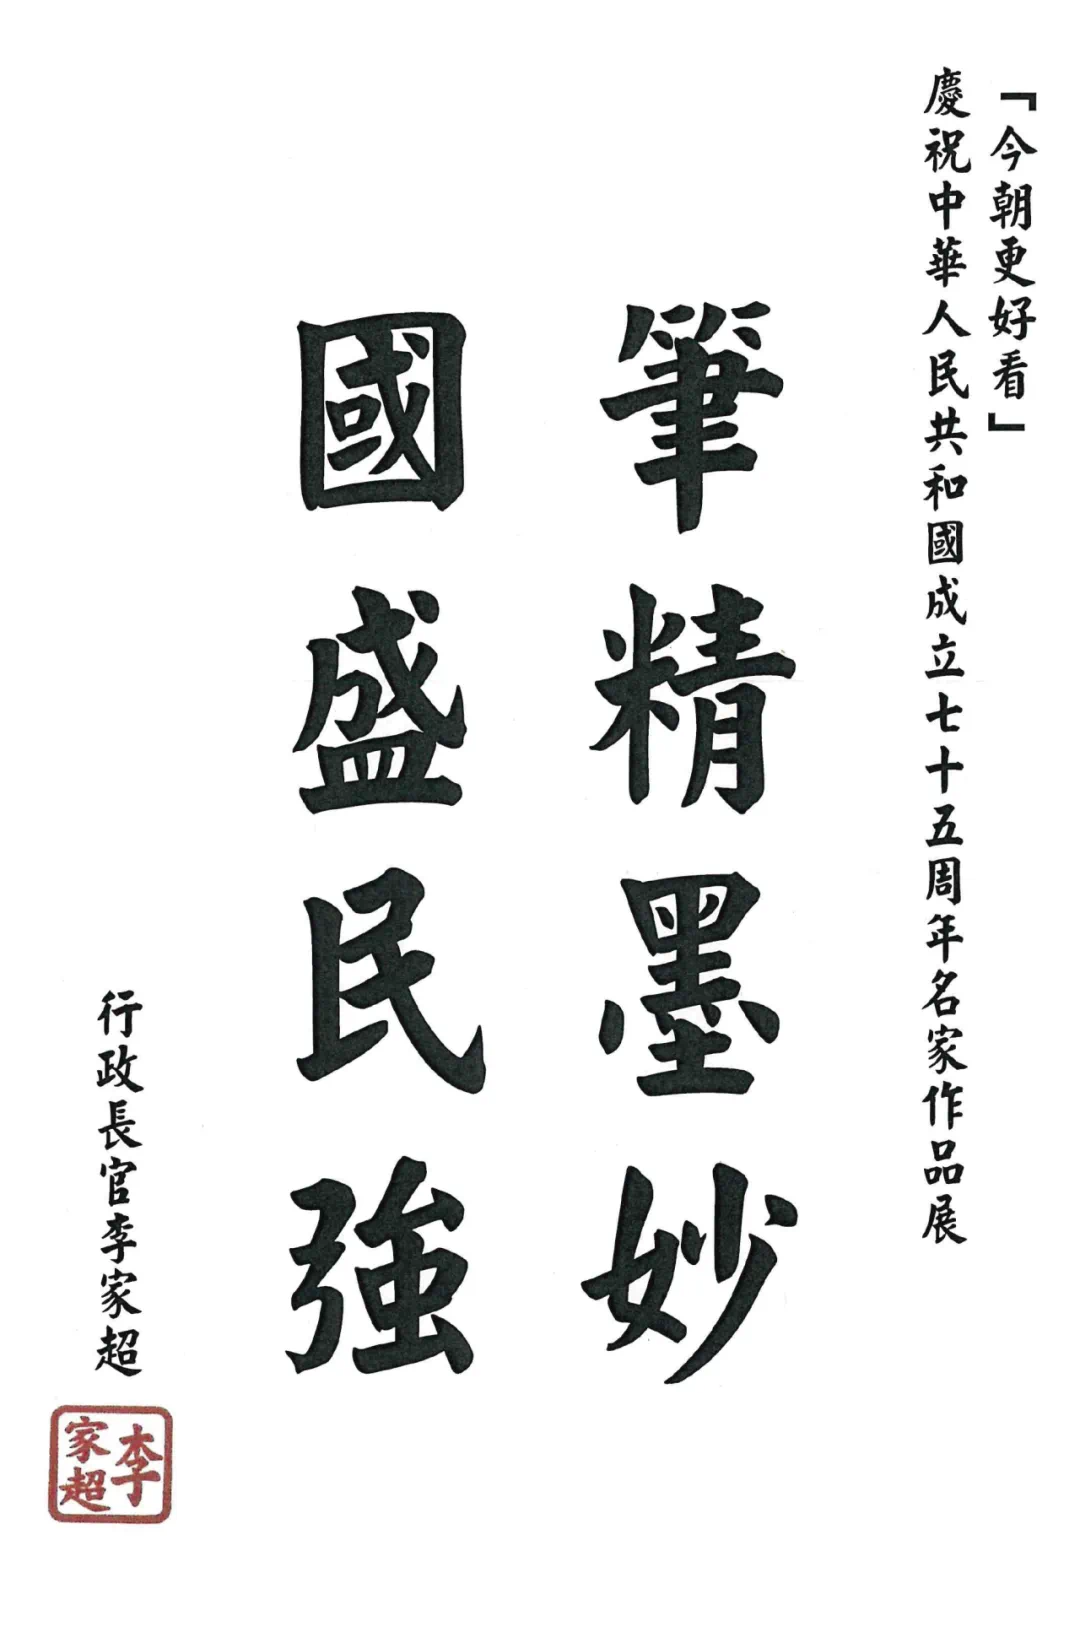 「今朝更好看」
慶祝中華人民共和國成立七十五周年名家作品展
筆精墨妙
國盛民強
行政長官李家超
李家超